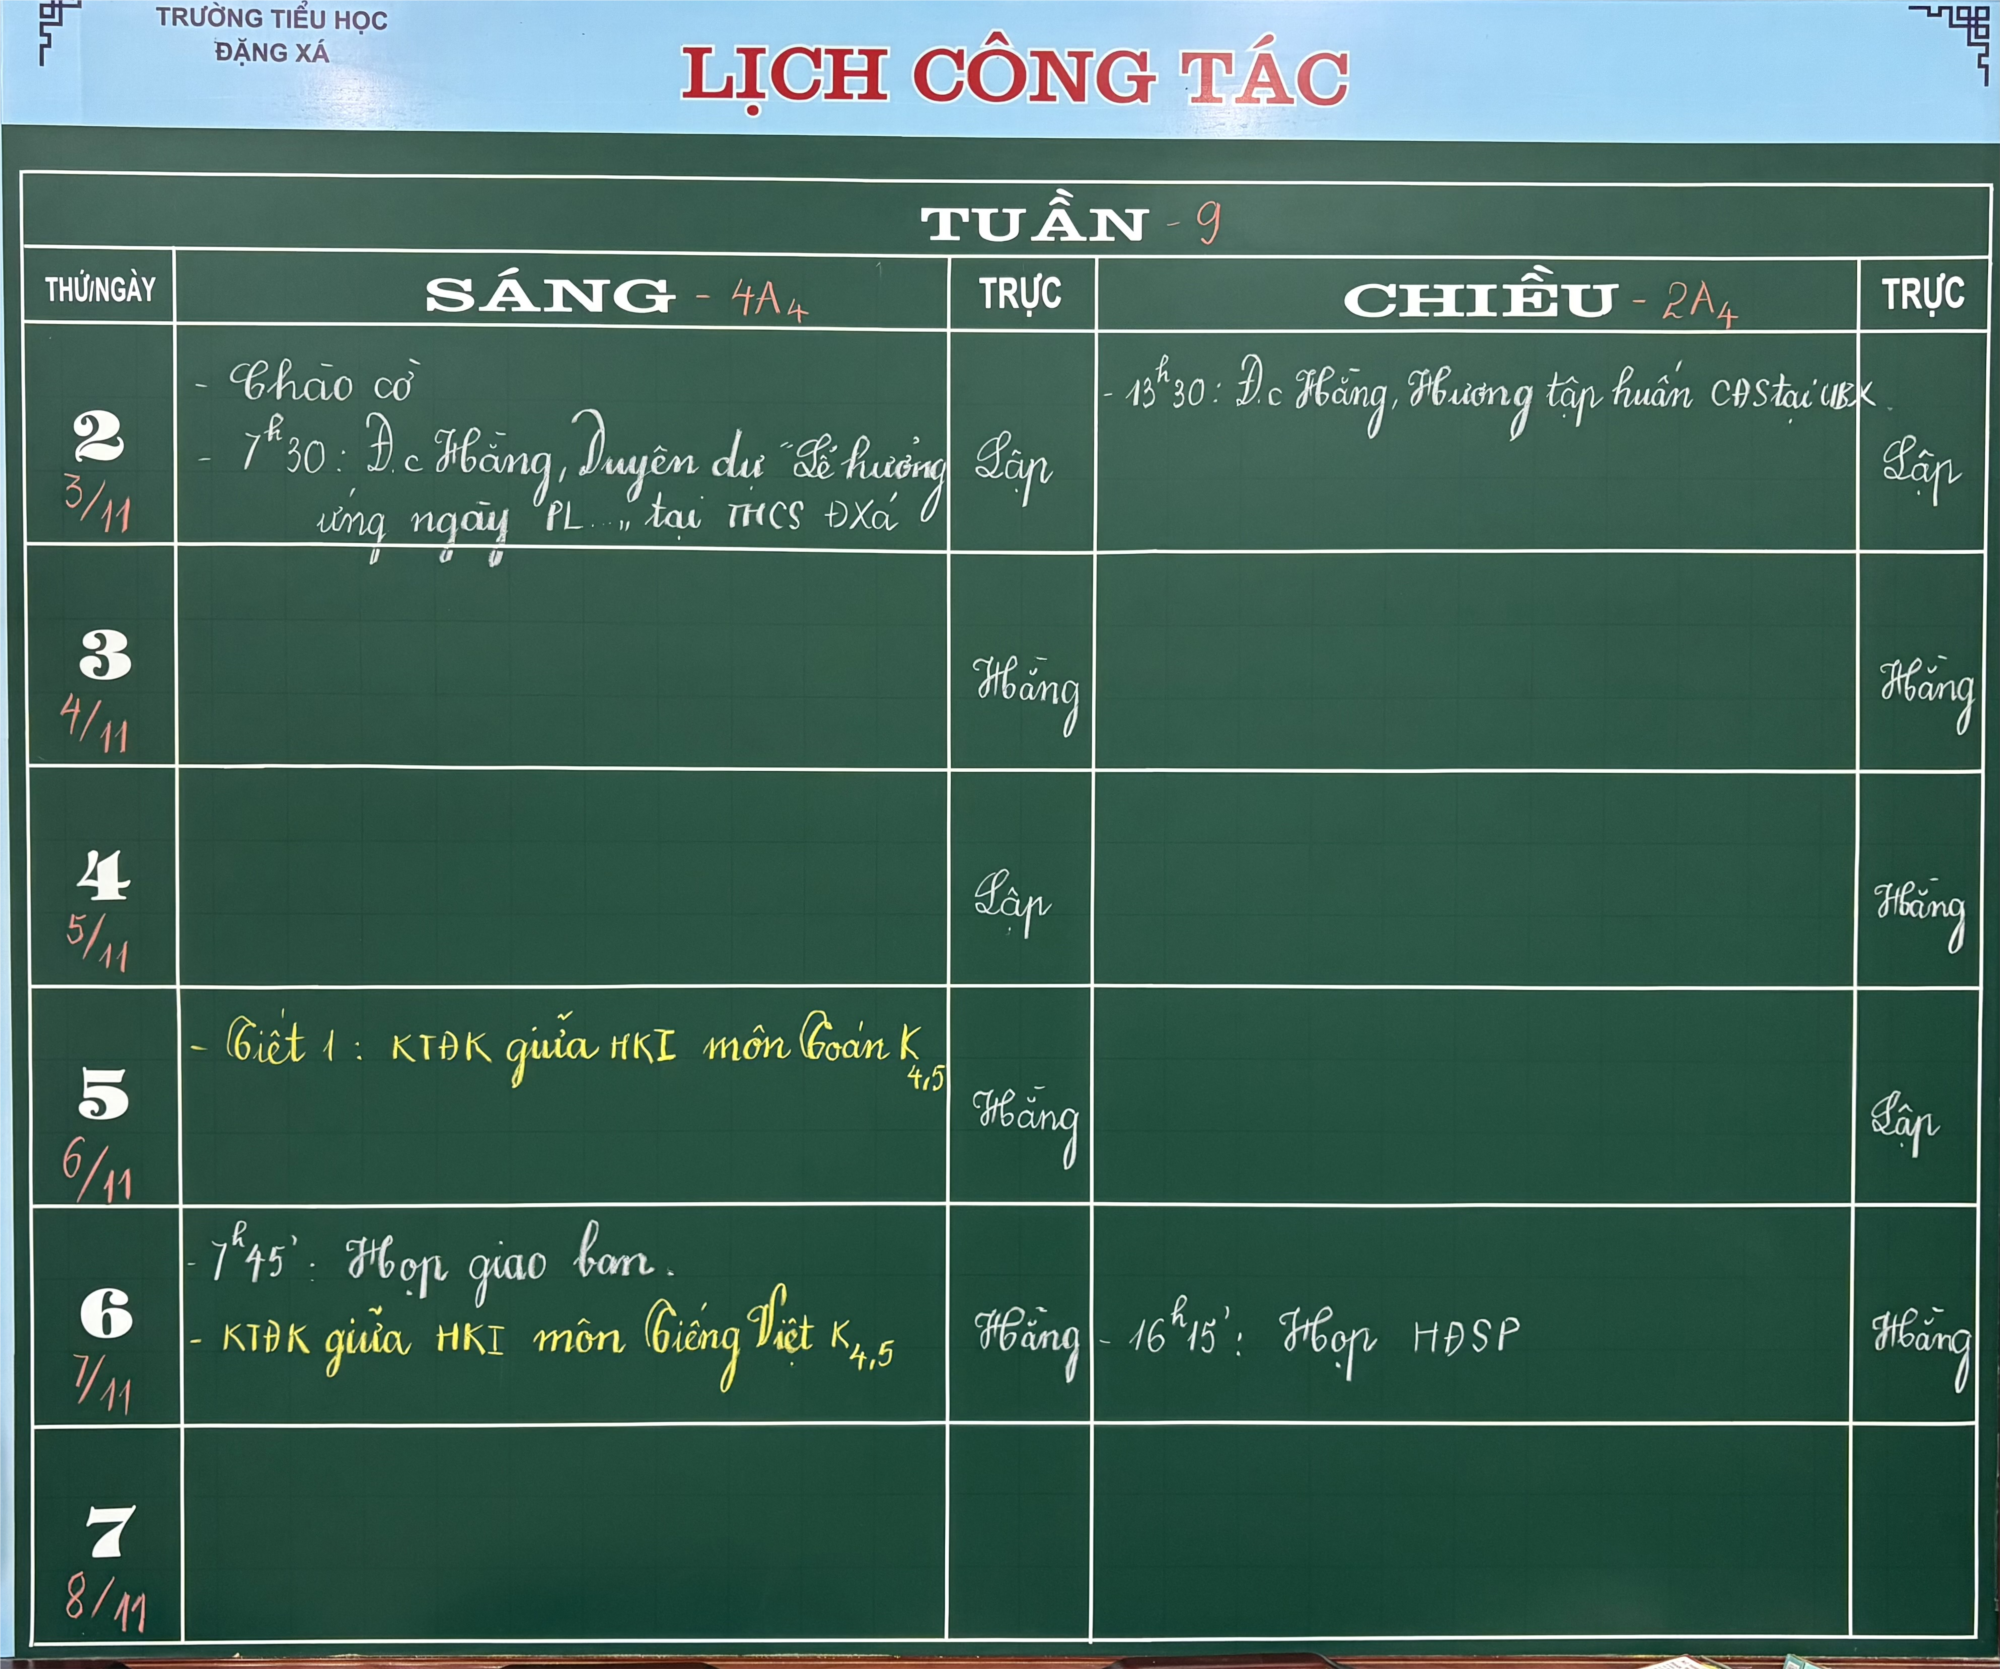 TRƯỜNG TIỂU HỌC
ĐẶNG XÁ
LỊCH CÔNG TÁC
TUẦN - 9
THỨ/NGÀY
SÁNG - 4A4
TRỰC
CHIỀU - 2A4
TRỰC
2
3/11
- Chào cờ
- 7h30: Đ.c Hằng, Duyên dự "Lễ hưởng
ứng ngày PL..." tại THCS ĐXá
Lập
- 13h30: Đ.c Hằng, Hương tập huấn CĐS tại UBX
Lập
3
4/11
Hằng
Hằng
4
5/11
Lập
Hằng
5
6/11
- Tiết 1: KTĐK giữa HKI môn Toán K4,5
Hằng
Lập
6
7/11
- 7h45': Họp giao ban.
- KTĐK giữa HKI môn Tiếng Việt K4,5
Hằng
- 16h15': Họp HĐSP
Hằng
7
8/11